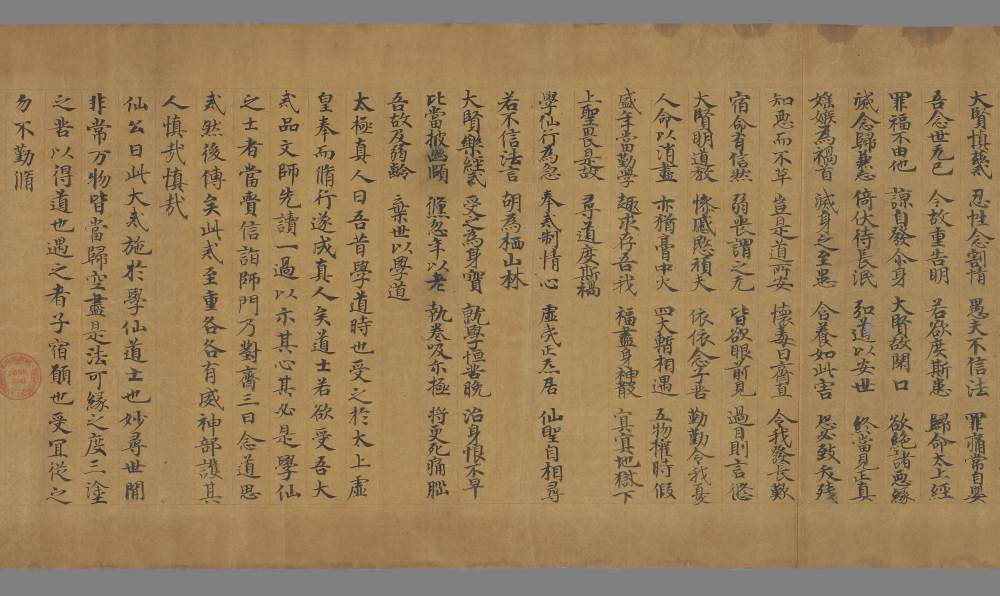 大賢慎兢戒 忍性念割情 愚夫不信法 罪痛常自嬰
吾念世无已 今故重告明 若欲度斯患 歸命太上經
罪福不由他 諒自發尒身 大賢故閉口 欲絕諸惡緣
滅念歸兼忘 倚伏待長泯 弘道以安世 終當見正真
婬嫉為禍首 滅身之至患 含養如此害 恐必致夭殘
知惡而不革 豈是道所安 懷毒日齋直 令我發長歎
宿命有信然 弱喪謂之无 皆欲眼前見 過目則言悠
大賢明道教 慘慼愍禎夫 依依念子苦 勤勤令我憂
人命以消盡 亦猶膏中火 四大暫相遇 五物權時假
盛年當勤學 趣求存吾我 福盡身神散 冥冥地獄下
上聖畏是故 尋道度斯禍
學仙行為急 奉戒制情心 虛夷正炁居 仙聖自相尋
若不信法言 胡為栖山林
大賢樂經戒 受之為身寶 就學恒苦晚 治身恨不早
比當披幽頤 僶忽年以老 執卷吸尒極 將更死痛惱
吾故及弱齡 棄世以學道
太極真人曰吾昔學道時也受之於太上虛
皇奉而脩行遂成真人矣道士若欲受吾大
戒品文師先讀一過以示其心其必是學仙
之士者當賷信詣師門乃對齊三日念道思
戒然後傳矣此戒至重各各有威神部護其
人慎哉慎哉
仙公曰此大戒施於學仙道士也妙尋世間
非常万物皆當歸空盡是法可緣之度三塗
之苦以得道也遇之者子宿願也受宜從之
勿不勤脩